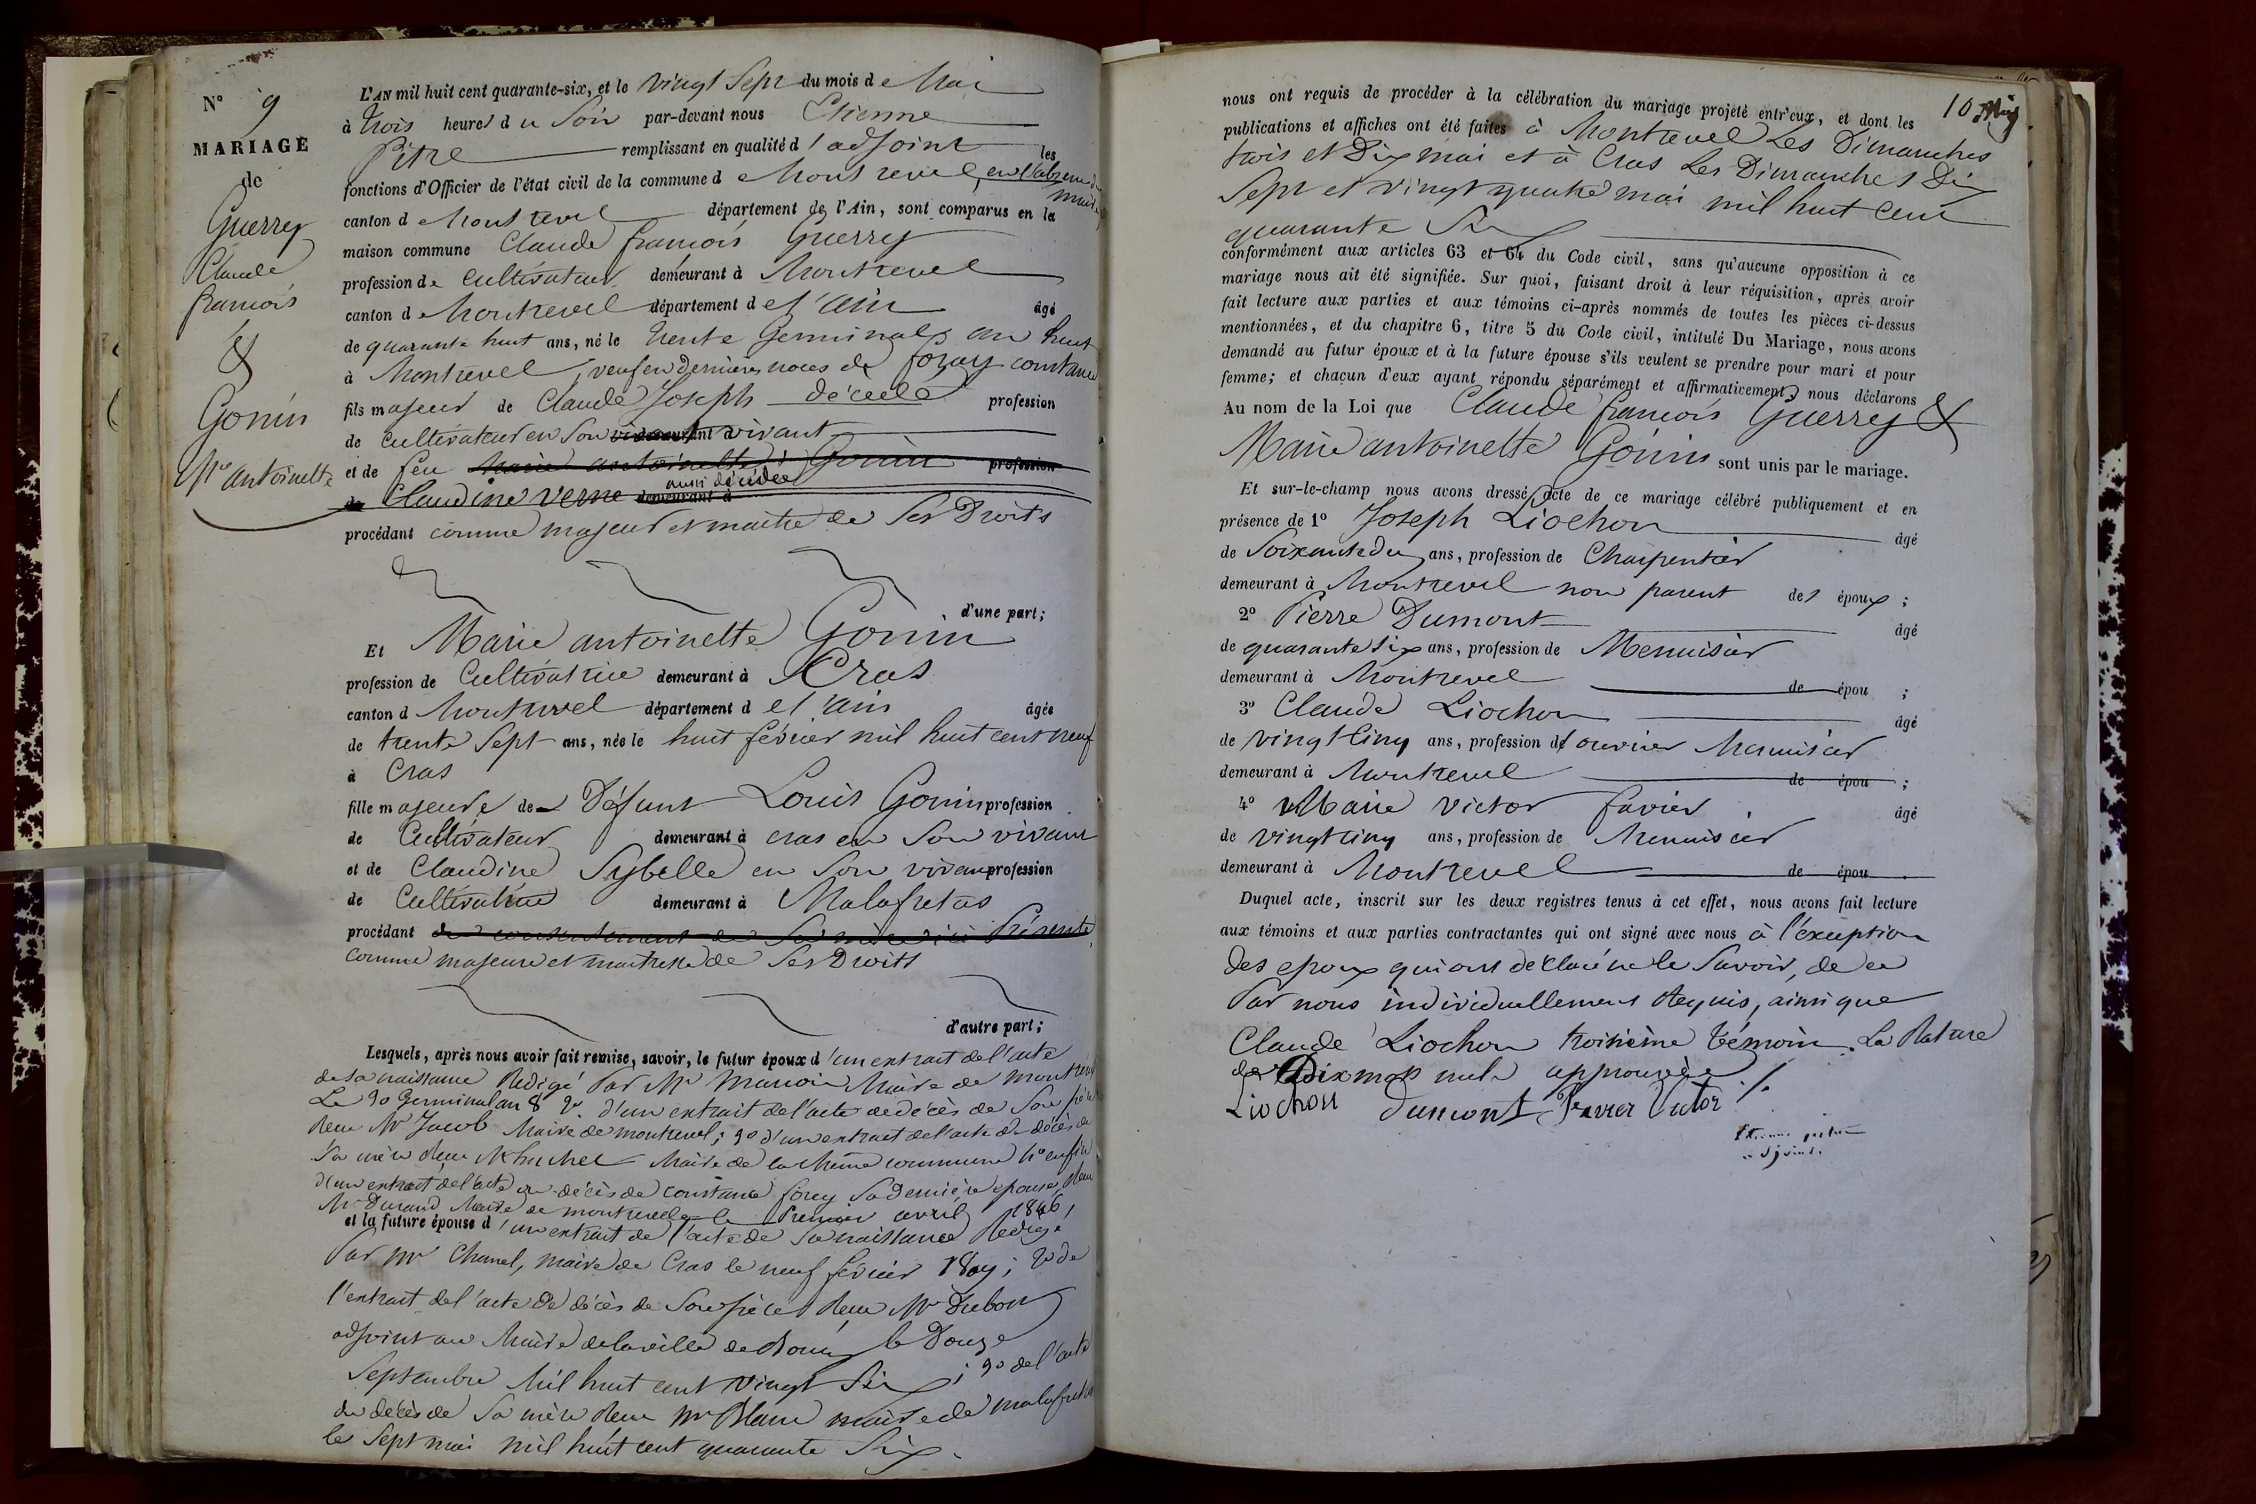 N° 9
MARIAGE
de
Guerrey
Claude
françois
&
Gonin
Mie antoinette
L'AN mil huit cent quarante-six, et le vingt Sept du mois de Mai
à trois heures du Soir par-devant nous Etienne
Pitre remplissant en qualité d'adjoint les
fonctions d'Officier de l'état civil de la commune de Montrevel, en l'absence du maire
canton de Montrevel département de l'Ain, sont comparus en la
maison commune Claude françois Guerrey
profession de cultivateur demeurant à Montrevel
canton de Montrevel département de l'ain âgé
de quarante huit ans, né le trente Germinal an huit
à Montrevel, veuf en dernières noces de foray constance
fils majeur de Claude Joseph décédé profession
de cultivateur en Son vivant demeurant à vivant
et de feu Marie antoinette Gonin profession
de Claudine Verne aussi décédée demeurant à
procédant comme majeur et maitre de Ses Droits
d'une part;
Et Marie antoinette Gonin
profession de Cultivatrice demeurant à Cras
canton d Montrevel département de l'ain âgée
de trente Sept ans, née le huit février mil huit cent neuf
à Cras
fille majeure de Défunt Louis Gonin profession
de Cultivateur demeurant à cras en Son vivant
et de Claudine Sybelle en Son vivant profession
de Cultivatrice demeurant à Malafretas
procédant du consentement de Sa mère ici Présente
comme majeure et maitresse de Ses Droits
d'autre part;
Lesquels, après nous avoir fait remise, savoir, le futur époux d'un extrait de l'acte
de sa naissance Rédigé Par Mr Maire de montrevel
Le 30 Germinal an 8 2°. d'un extrait de l'acte de décès de Son père
Reçu Mr Jacob Maire de montrevel; 3° d'un extrait de l'acte de décès de
Sa mère Reçu Maire de la même commune 4° enfin
d'un extrait de l'acte de décès de constance foray Sa dernière épouse, Reçu
Mr Durand Maire de montrevel le Premier avril 1846,
et la future épouse d'un extrait de l'acte de Sa naissance Rédigé
Par Mr Chanel, maire de Cras le neuf février 1809; 2° de
l'extrait de l'acte de décès de Son père Reçu Mr Dubou
adjoint au Maire de la ville de Bourg le Douze
Septembre Mil huit cent vingt Six; 3° de l'acte
de décès de Sa mère Reçu Mr Blanc maire de malafretas
le Sept mai mil huit cent quarante Six.
10
nous ont requis de procéder à la célébration du mariage projeté entr'eux, et dont les
publications et affiches ont été faites à Montrevel Les Dimanches
trois et Dix mai et à Cras Les Dimanches Dix
Sept et vingt quatre mai mil huit cent
quarante Six
conformément aux articles 63 et 64 du Code civil, sans qu'aucune opposition à ce
mariage nous ait été signifiée. Sur quoi, faisant droit à leur réquisition, après avoir
fait lecture aux parties et aux témoins ci-après nommés de toutes les pièces ci-dessus
mentionnées, et du chapitre 6, titre 5 du Code civil, intitulé Du Mariage, nous avons
demandé au futur époux et à la future épouse s'ils veulent se prendre pour mari et pour
femme; et chacun d'eux ayant répondu séparément et affirmativement, nous déclarons
Au nom de la Loi que Claude françois Guerrey &
Marie antoinette Gonin sont unis par le mariage.
Et sur-le-champ nous avons dressé acte de ce mariage célébré publiquement et en
présence de 1° Joseph Liochon âgé
de Soixante deux ans, profession de Charpentier
demeurant à Montrevel non parent des époux;
2° Pierre Dumont âgé
de quarante six ans, profession de Menuisier
demeurant à Montrevel de épou ;
3° Claude Liochon âgé
de vingt cinq ans, profession d'ouvrier Menuisier
demeurant à Montrevel de épou ;
4° Marie victor favier âgé
de vingt cinq ans, profession de Menuisier
demeurant à Montrevel de épou .
Duquel acte, inscrit sur les deux registres tenus à cet effet, nous avons fait lecture
aux témoins et aux parties contractantes qui ont signé avec nous à l'exception
des epoux qui ont déclaré ne le Savoir, de ce
Par nous individuellement Requis, ainsi que
Claude Liochon troisième témoin. La Rature
de Dix mots nuls approuvée ./.
Liochon dumont favier victor
Etienne pitre
adjoint.